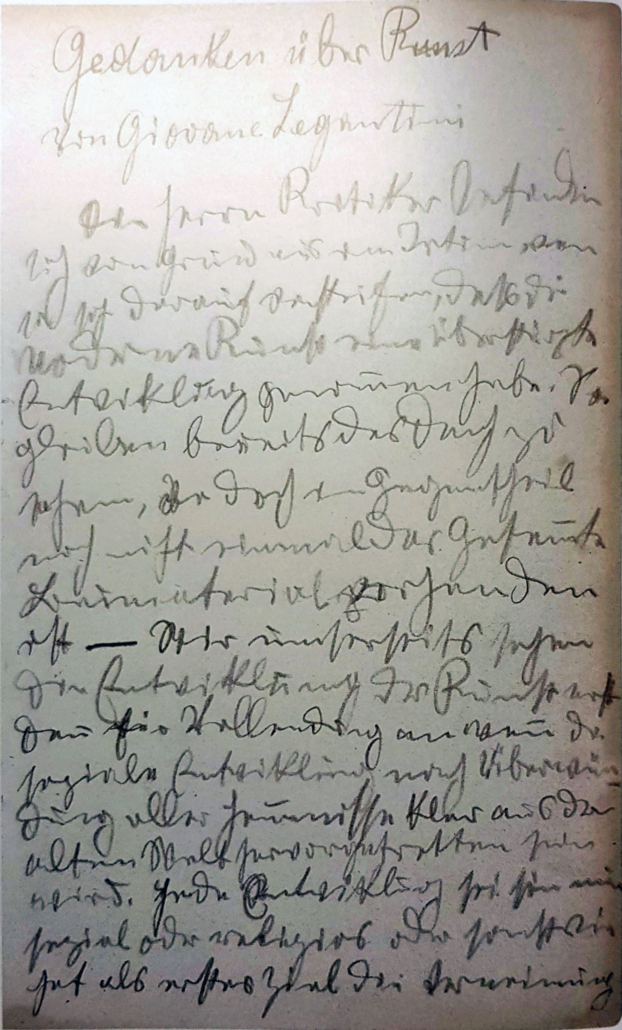 Gedanken über Kunst
von Giovane Segantini
Die Herrn Kritiker befinden
sich von Grund aus im Irrtum wen
sie sich darauf versteifen, daß die
moderne Kunst eine überstürzte
Entwiklung genom̅en habe. Sie
glauben bereits das Dach zu
sehen, wo doch im Gegentheil
noch nicht einmal das Gesam̅te
Baumaterial vorhanden
ist — Wir unserseits sehen
die Entwiklung der Kunst erst
den̅ für Vollendung an wen̅ die
soziale Entwiklung nach Überwin-
dung aller Hem̅nisse klar aus der
alten Welt hervorgetretten sein
wird. Jede Entwiklung sei sie nun
sozial oder religiös oder sonst wie
hat als erstes Ziel die Verneinung